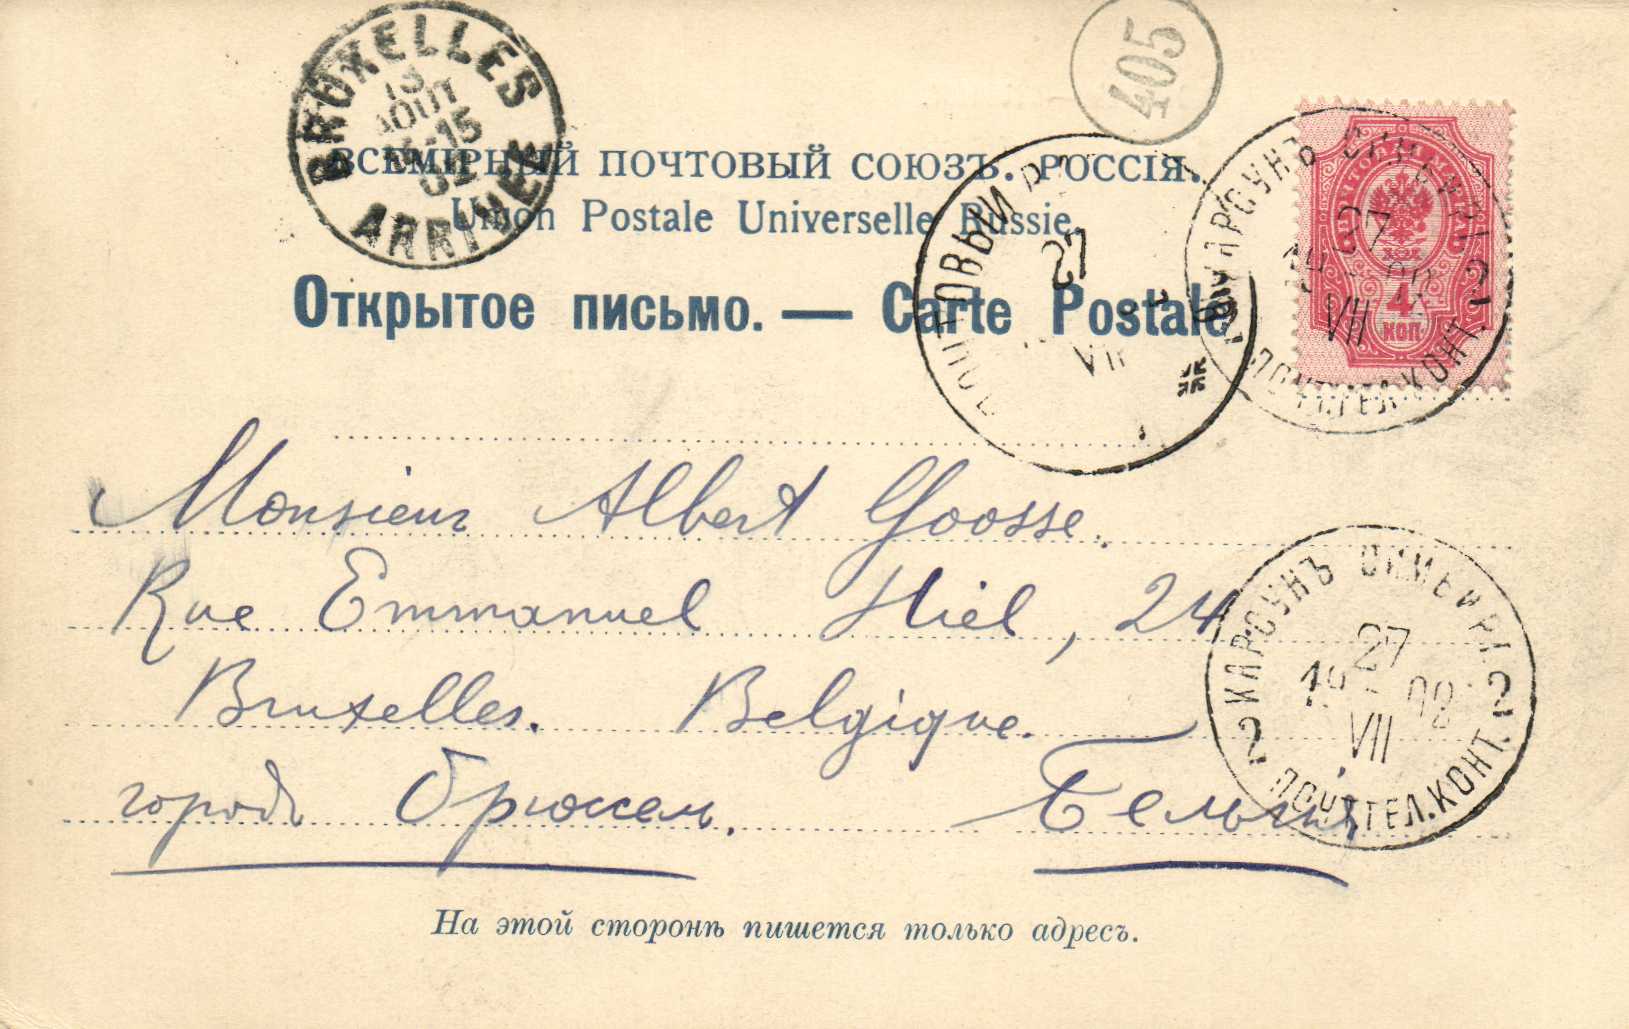 BRUXELLES
13
AOUT
-15
02
ARRIVEE
405
ВСЕМІРНЫЙ ПОЧТОВЫЙ СОЮЗЪ. РОССІЯ.
Union Postale Universelle Russie.
Открытое письмо. — Carte Postale
ПОЧТОВЫЙ
27
VII
КАРСУНЪ СИМБИР.
27
VII
2
ПОЧТ.ТЕЛ.КОНТ.
ПОЧТОВАЯ МАРКА
4
КОП
Monsieur Albert Goosse.
Rue Emmanuel Hiel, 24
Bruxelles. Belgique.
городъ Брюссель. Бельгія
КАРСУНЪ СИМБИР.
27
19 02
VII
2 2
ПОЧТ.ТЕЛ.КОНТ.
На этой сторонѣ пишется только адресъ.